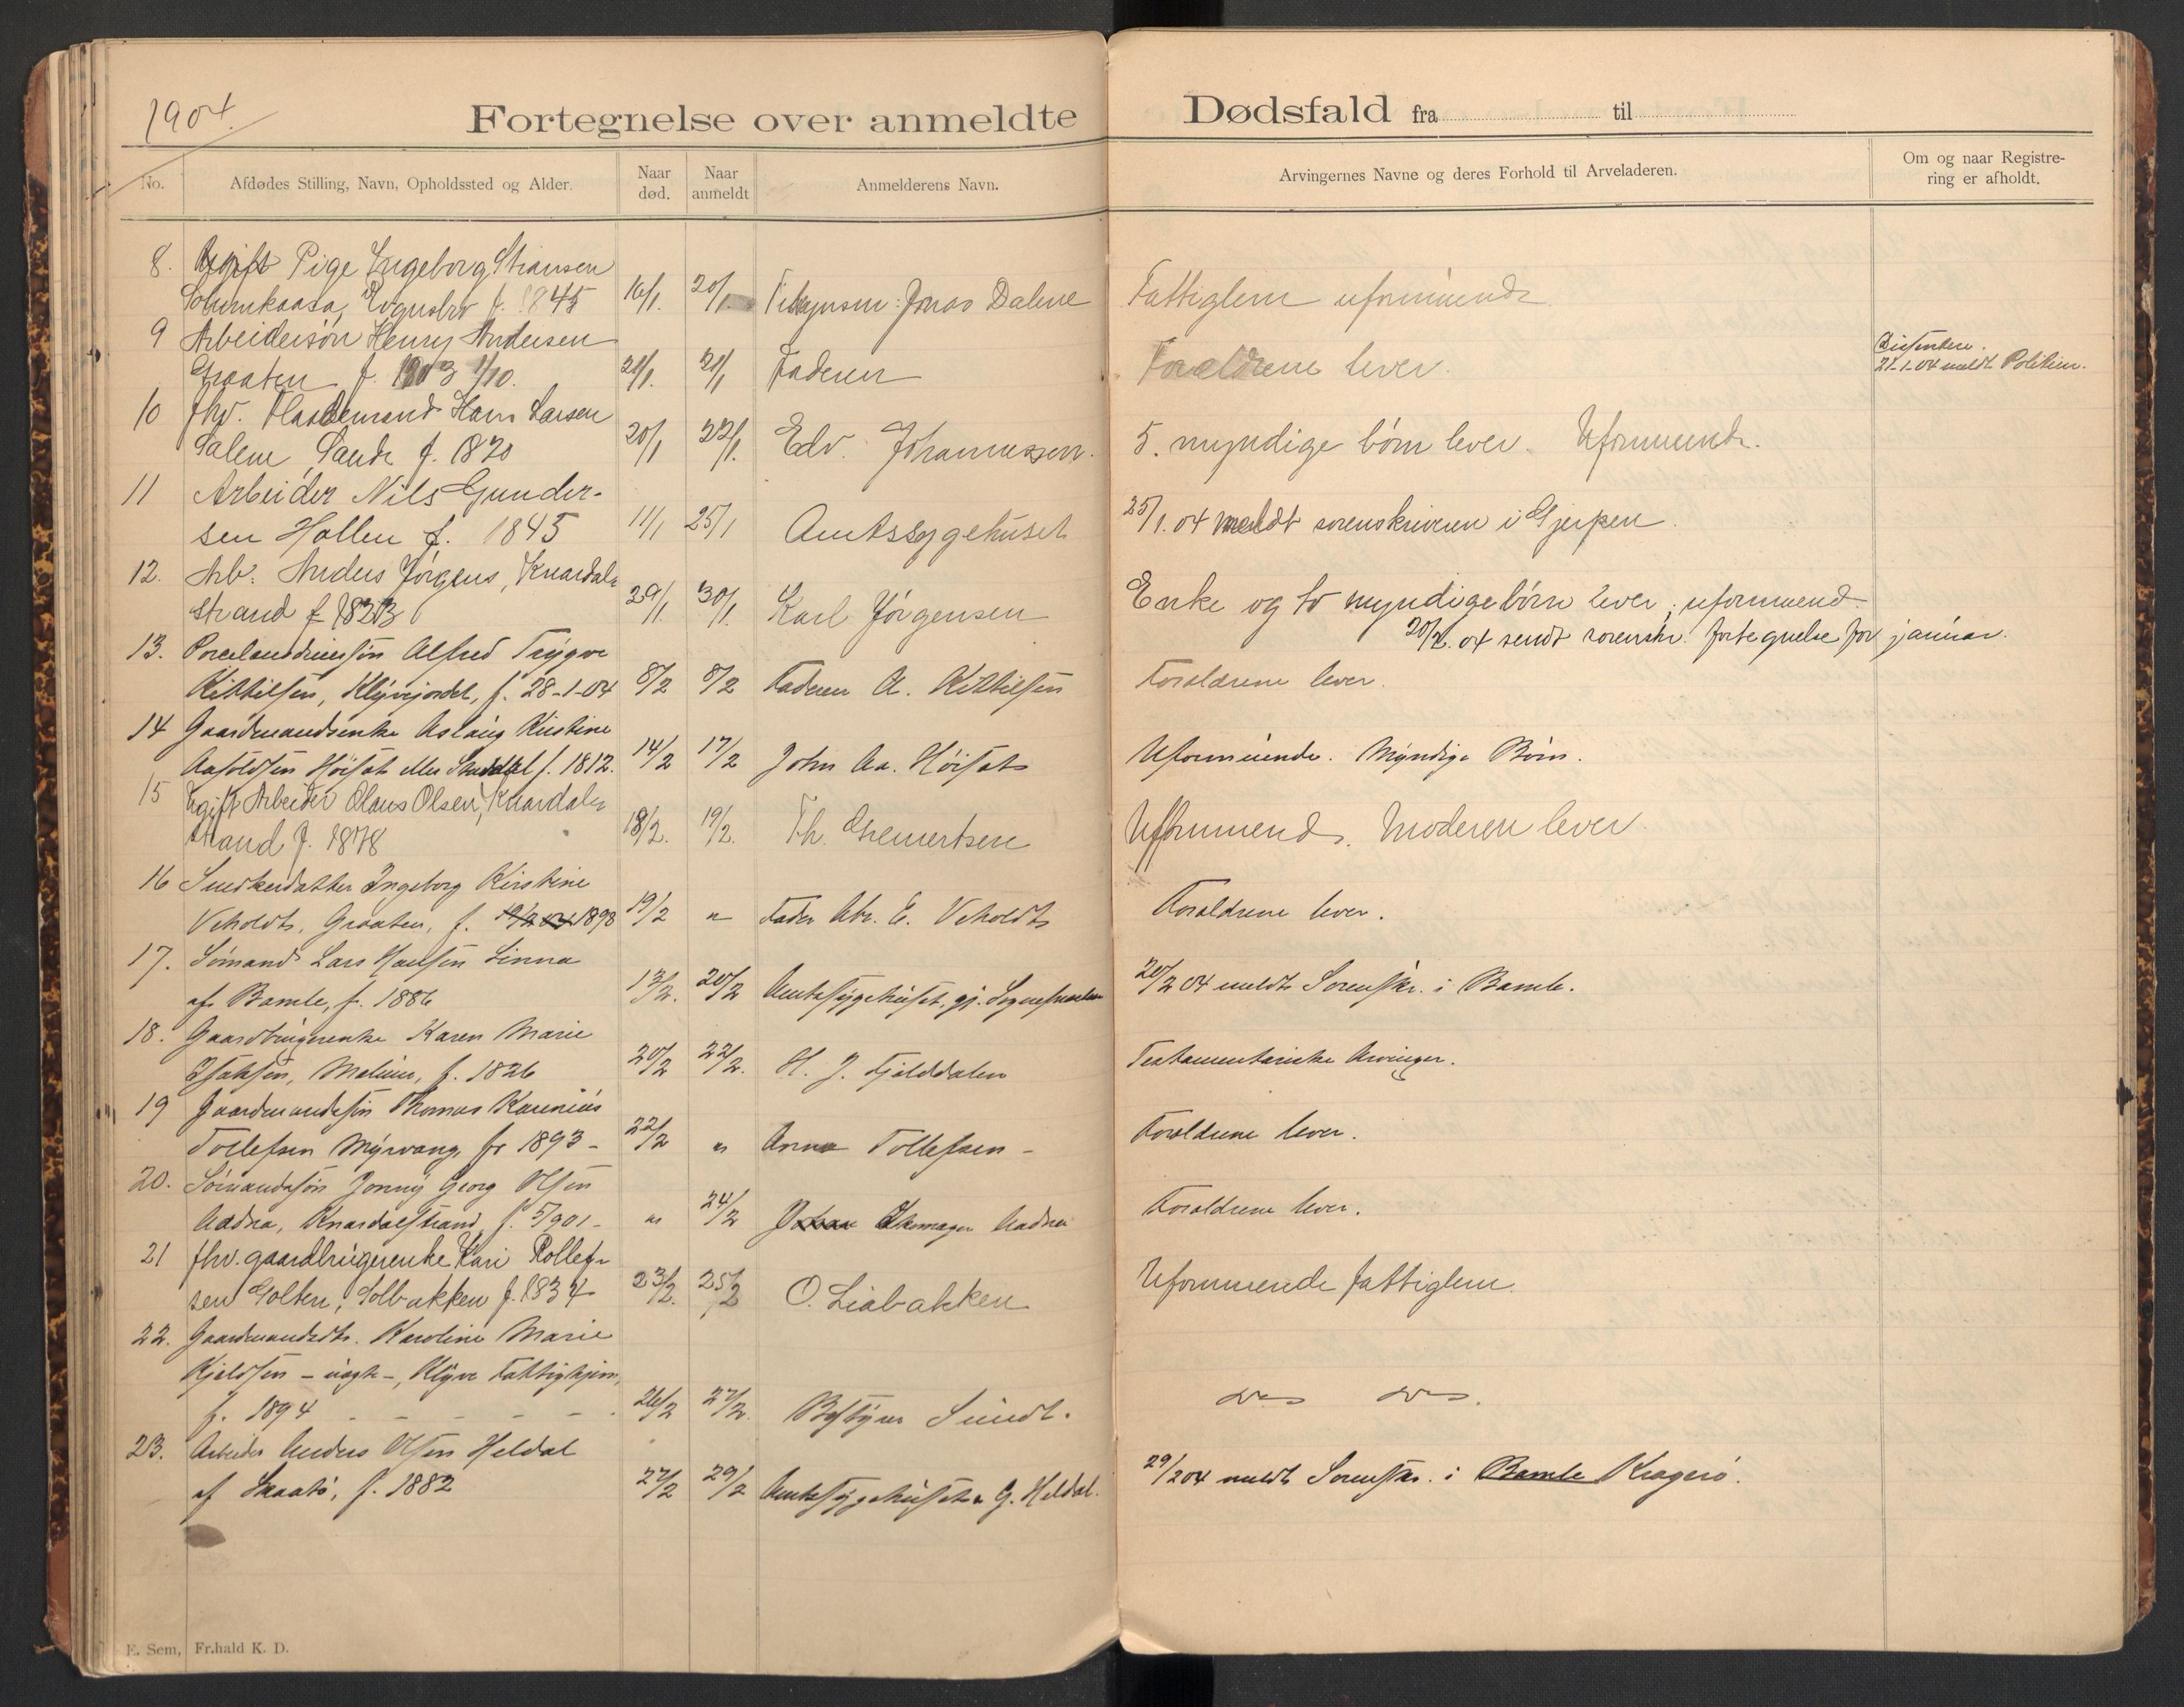 1904.
Fortegnelse over anmeldte Dødsfald fra til
No. Afdødes Stilling, Navn, Opholdssted og Alder. Naar død. Naar anmeldt Anmelderens Navn. Arvingernes Navne og deres Forhold til Arveladeren. Om og naar Registrering er afholdt.
8. Ugift Pige Ingeborg Stiansen
f. 1845 16/1. 20/1 Tilsynsm: Jonas Dalene Fattiglem uformuende
9 Arbeidersøn Henry Andersen
Graaten f. 1903 1/10. 20/1 Faderen Forældrene lever. Dissentere.
21-1-04 meldt Politien.
10 fhv. Hans Larsen
Salem, Sande f. 1820 20/1 22/1. Edv. Johannessen. 5. myndige børn lever. Uformuende.
11 Arbeider Nils Gunder-
sen Hollen f. 1845 11/1 25/1 Amtssygehuset 25/1.04 meldt sorenskriveren i Gjerpen.
12. Arb. Anders Jørgens, Knardals
strand f 1823 29/1. 30/1. Karl Jørgensen Enke og to myndige børn lever, uformuend.
20/2.04 sendt sorenskr. fortegnelse for januar.
13. Alfred Trygve
Kittilsen, Klyvejordet, f. 28-1-04 8/2 8/2 Faderen A. Kittilsen Forældrene lever.
14 Gaardmandsenke Aslaug Kirstine
Aasoldsen Höisæt eller f. 1812. 14/2 17/2 John Aa. Höisæt Uformuende. Myndige Børn.
15 Ugift Arbeider Olaus Olsen, Knardals
strand f. 1878 18/2. 19/2. Th. Uformuende. Moderen lever.
16 Snedkerdatter Ingeborg Kirstine
Veholdt, Graaten, f. 1898 19/2 " Fader Abr. E. Veholdt Forældrene lever.
17. Sømand Lars Linna
af Bamle, f. 1886 13/2. 20/2 Amtssygehuset, gj. 20/2 04 meldt Sorenskr. i Bamle.
18. Gaardbrugerenke Karen Marie
Isaksen, Melum, f. 1826 20/2 22/2. H. J. Fjelddalen Testamentariske Arvinger.
19 Gaardmandssøn Thomas Karenius
Tollefsen Myrvang, f. 1893 - 22/2 " Anna Tollefsen - Forældrene lever.
20. Sømandssøn Jonny Georg Olsen
Aadna, Knardalstrand, f. 5/901 - " 24/2 Skomager Aadna Forældrene lever.
21 fhv. gaardbrugerenke Kari Rollef-
sen Golten, Solbakken f. 1834 23/2. 25/2 O. Liabakken Uformuende fattiglem.
22. Gaardmandsdtr. Karoline Marie
Kjeldsen - uægte -, Klyve Fattighjem,
f. 1894 - - - - - 26/2 27/2. Bestyrer Sundt. do do.
23. Arbeider Anders Olsen Heldal
af Skaatø, f. 1882 27/2 29/2 Amtssygehuset G. Heldal. 29/2 04 meldt Sorenskr. i Bamle Kragerø.
E. Sem, Fr.hald K. D.